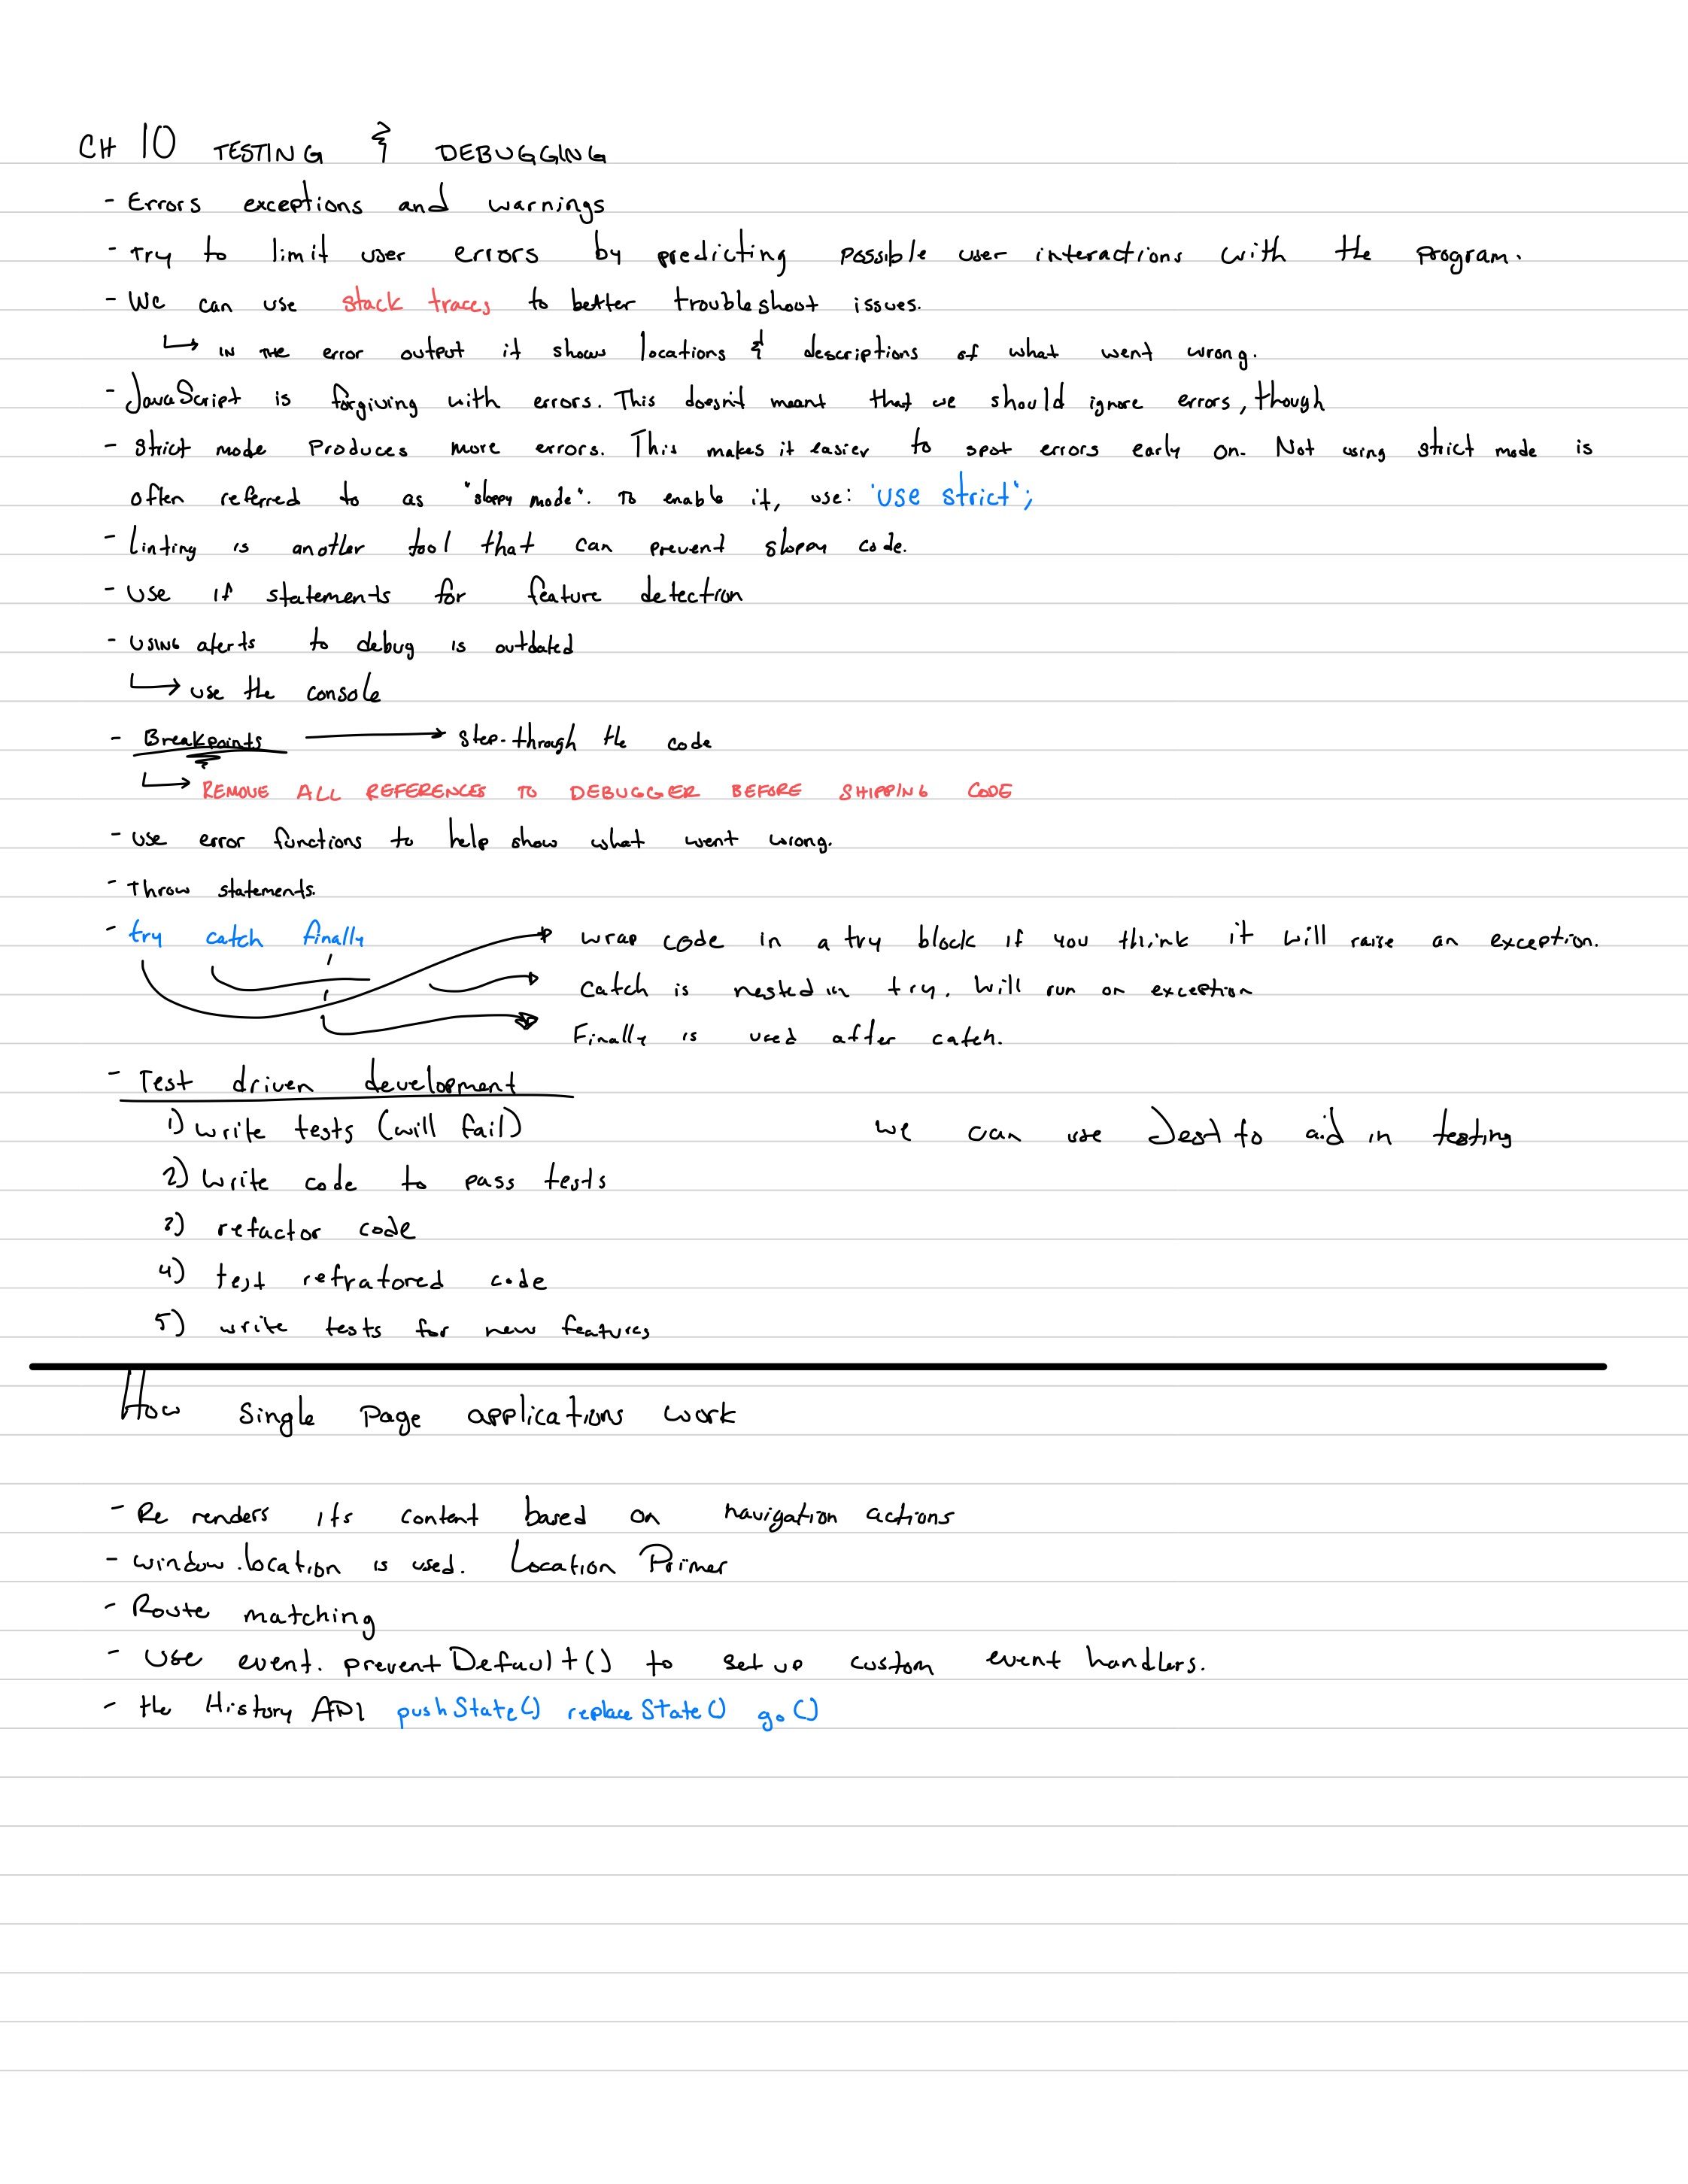 CH 10 TESTING & DEBUGGING
- Errors exceptions and warnings
- Try to limit user errors by predicting possible user interactions with the program.
- We can use stack traces to better troubleshoot issues.
↳ IN THE error output it shows locations & descriptions of what went wrong.
- JavaScript is forgiving with errors. This doesn't meant that we should ignore errors, though
- Strict mode Produces more errors. This makes it easier to spot errors early on. Not using strict mode is
often referred to as "sloppy mode". To enable it, use: 'use strict';
- Linting is another tool that can prevent sloppy code.
- Use if statements for feature detection
- USING alerts to debug is outdated
↳ use the console
- Breakpoints → step-through the code
↳ REMOVE ALL REFERENCES TO DEBUGGER BEFORE SHIPPING CODE
- Use error functions to help show what went wrong.
- Throw statements.
- try catch finally → wrap code in a try block if you think it will raise an exception.
→ Catch is nested in try. Will run on exception
→ Finally is used after catch.
- Test driven development
1) write tests (will fail) we can use Jest to aid in testing
2) Write code to pass tests
3) refactor code
4) test refratored code
5) write tests for new features
How Single Page applications work
- Re renders its content based on navigation actions
- window.location is used. Location Primer
- Route matching
- Use event.preventDefault() to set up custom event handlers.
- the History API pushState() replaceState() go()